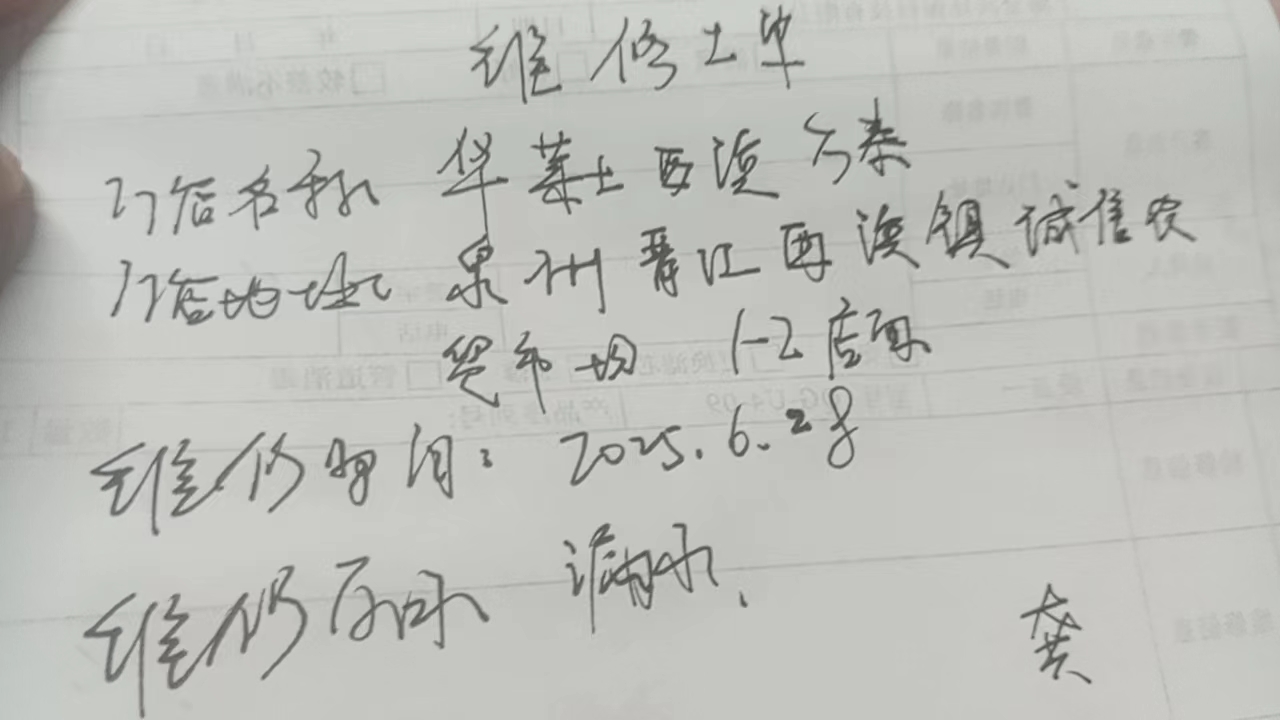 维修工单
门店名称 华莱士西滨公泰
门店地址 泉州晋江西滨镇诚信农
贸市场 1-2店面
维修时间: 2025.6.28
维修原因 漏水.
龚